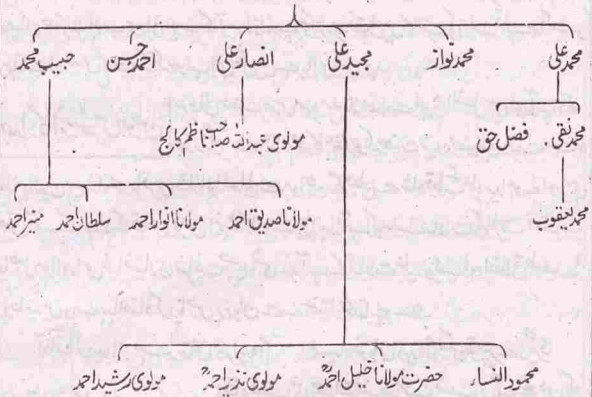 محمد علی محمد نواز مجید علی انصار علی احمد حسن حبیب محمد
محمد نقی فضل حق مولوی عبداللہ صاحب ناظم کالج
محمد یعقوب مولانا صدیق احمد مولانا انوار احمد سلطان احمد منیر احمد
محمود النساء حضرت مولانا خلیل احمدؒ مولوی نذیر احمدؒ مولوی رشید احمد